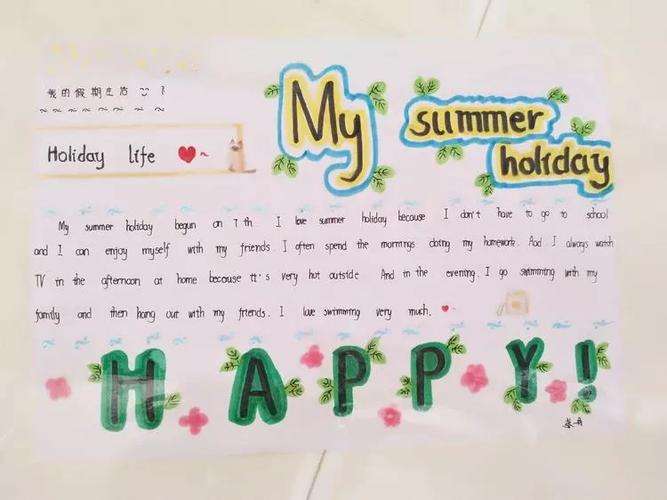 我的假期生活
My
summer
holiday
Holiday life
My summer holiday begun on 7 th. I love summer holiday because I don't have to go to school
and I can enjoy myself with my friends. I often spend the mornings doing my homework. And I always watch
TV in the afternoon at home because it's very hot outside. And in the evening. I go swimming with my
family and then hang out with my friends. I love swimming very much.
HAPPY!